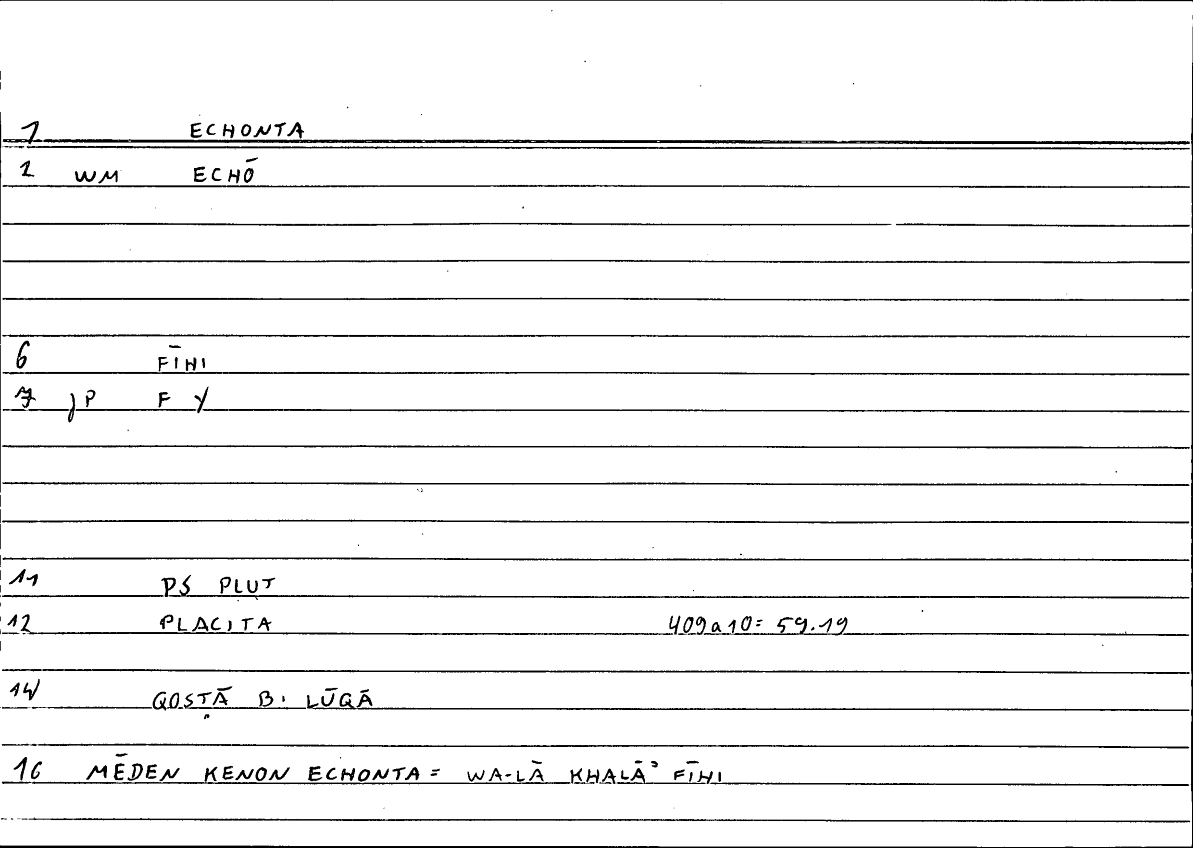 1 ECHONTA
2 WM ECHŌ
6 FĪHI
7 JP F Y
11 PS PLUT
12 PLACITA 409a10= 59.19
14 QOSṬĀ B. LŪQĀ
16 MĒDEN KENON ECHONTA = WA-LĀ KHALĀʾ FĪHI